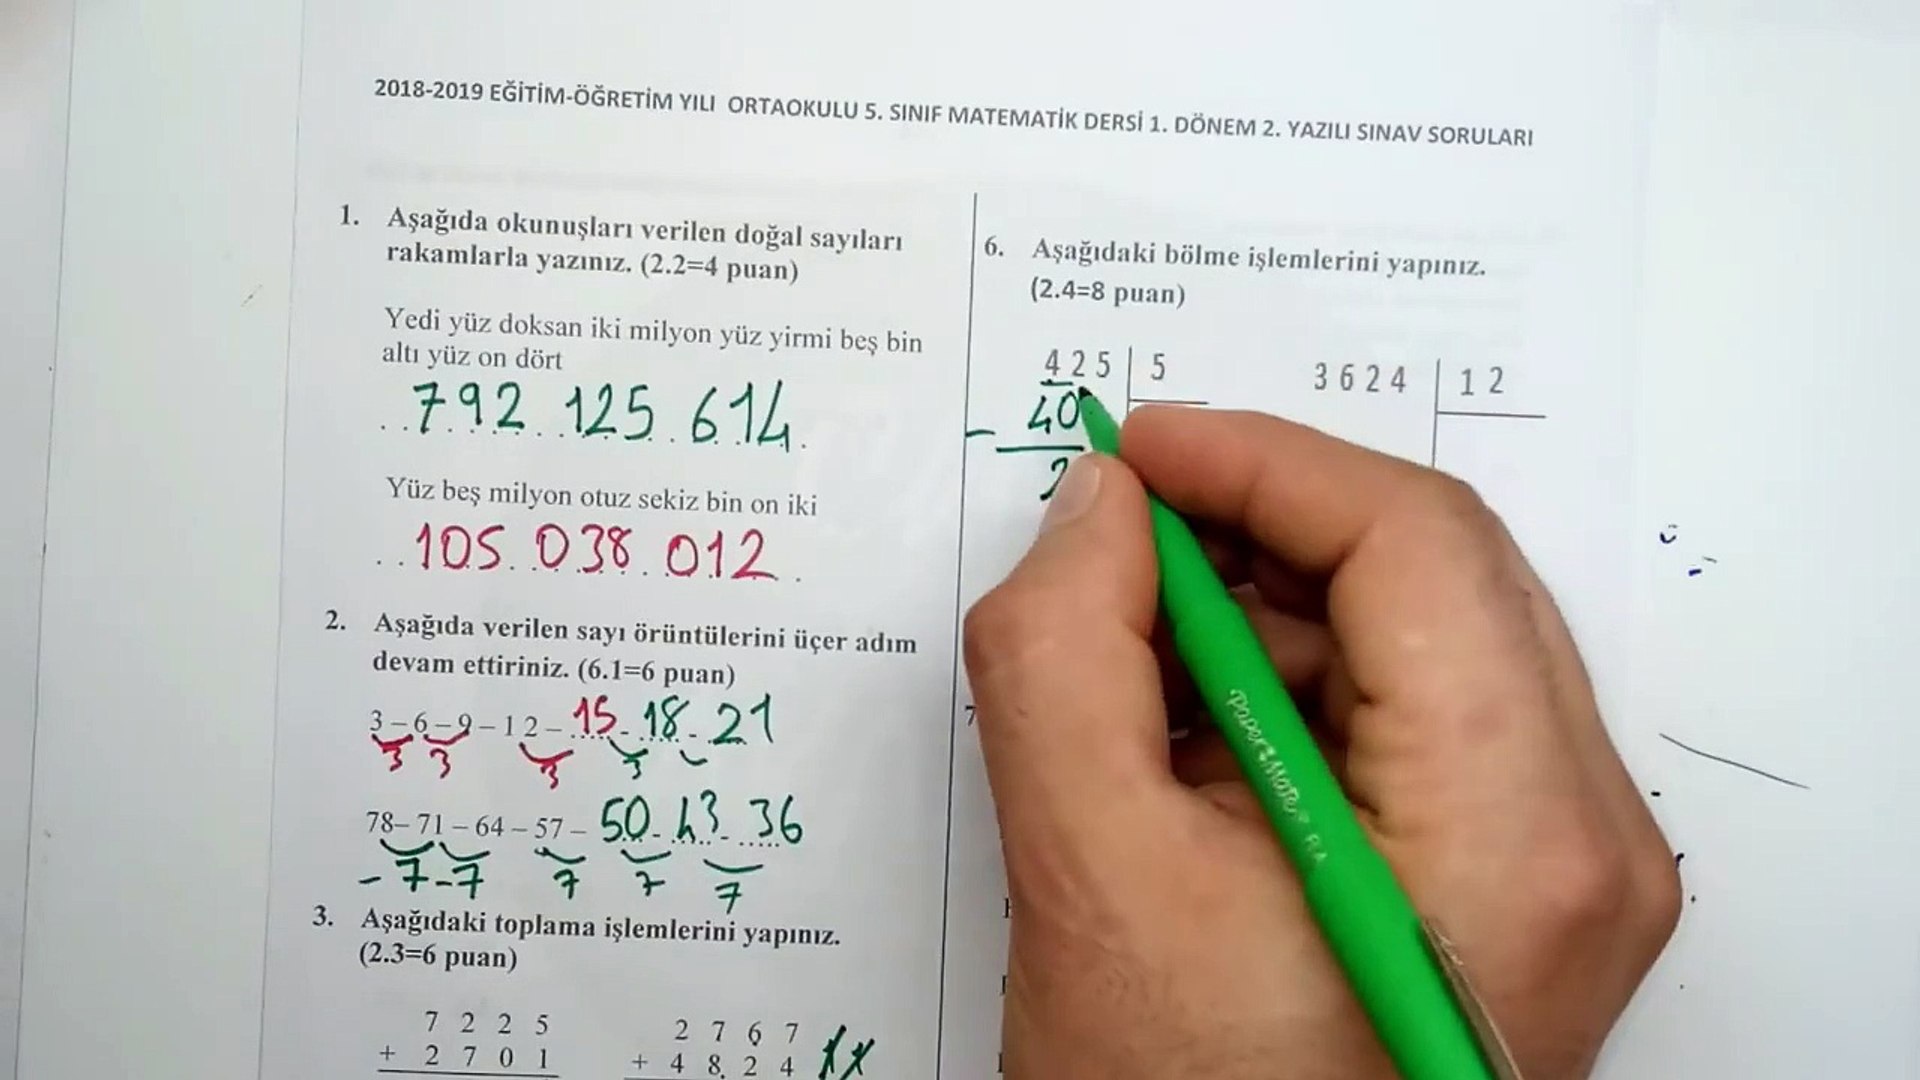 2018-2019 EĞİTİM-ÖĞRETİM YILI ORTAOKULU 5. SINIF MATEMATİK DERSİ 1. DÖNEM 2. YAZILI SINAV SORULARI
1. Aşağıda okunuşları verilen doğal sayıları
rakamlarla yazınız. (2.2=4 puan)
Yedi yüz doksan iki milyon yüz yirmi beş bin
altı yüz on dört
792 125 614
Yüz beş milyon otuz sekiz bin on iki
105 038 012
2. Aşağıda verilen sayı örüntülerini üçer adım
devam ettiriniz. (6.1=6 puan)
3 – 6 – 9 – 12 – 15 - 18 - 21
3 3 3 3
78– 71 – 64 – 57 – 50 - 43 - 36
-7 -7 7 7 7
3. Aşağıdaki toplama işlemlerini yapınız.
(2.3=6 puan)
7 2 2 5
+ 2 7 0 1
2 7 6 7
+ 4 8 2 4
6. Aşağıdaki bölme işlemlerini yapınız.
(2.4=8 puan)
425 5
- 40
2
3624 12
7
Paper Mate